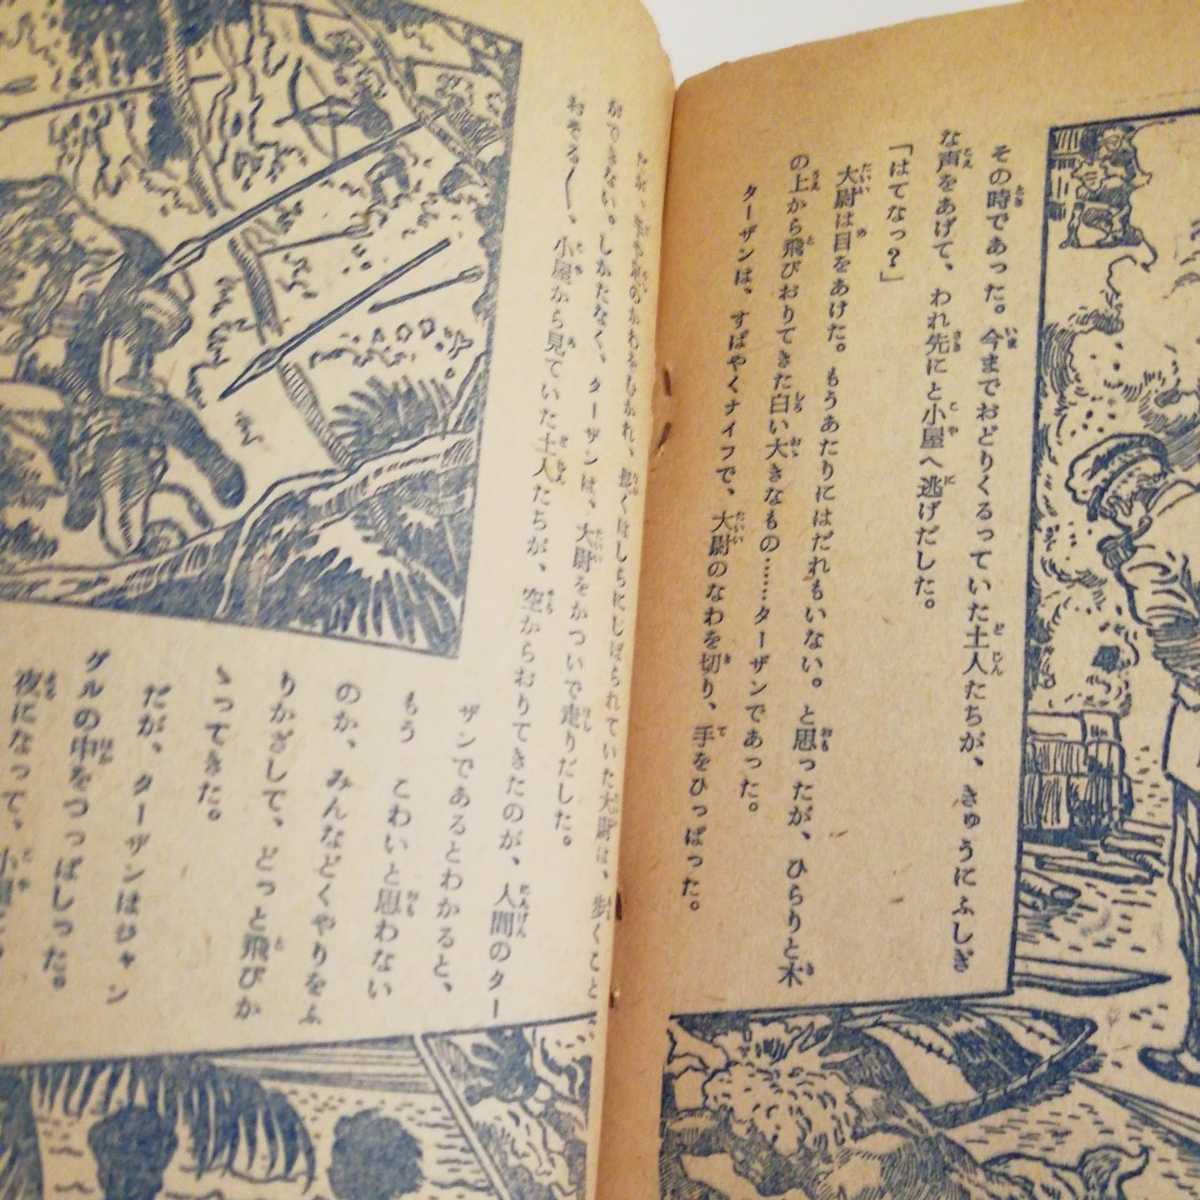 その時であった。今までおどりくるっていた土人たちが、きゅうにふしぎ
な声をあげて、われ先にと小屋へ逃げだした。
「はてなっ？」
大尉は目をあけた。もうあたりにはだれもいない。と思ったが、ひらりと木
の上から飛びおりてきた白い大きなもの……ターザンであった。
ターザンは、すばやくナイフで、大尉のなわを切り、手をひっぱった。
くはしらにしばられていた大尉は、歩くこと
ができない。しかたなく、ターザンは、大尉をかついで走りだした。
おそる〱、小屋から見ていた土人たちが、空からおりてきたのが、人間のター
ザンであるとわかると、
もう こわいと思わない
のか、みんなどくやりをふ
りかざして、どっと飛びか
ゝってきた。
だが、ターザンはジャン
グルの中をつっぱしった。
夜になって、小